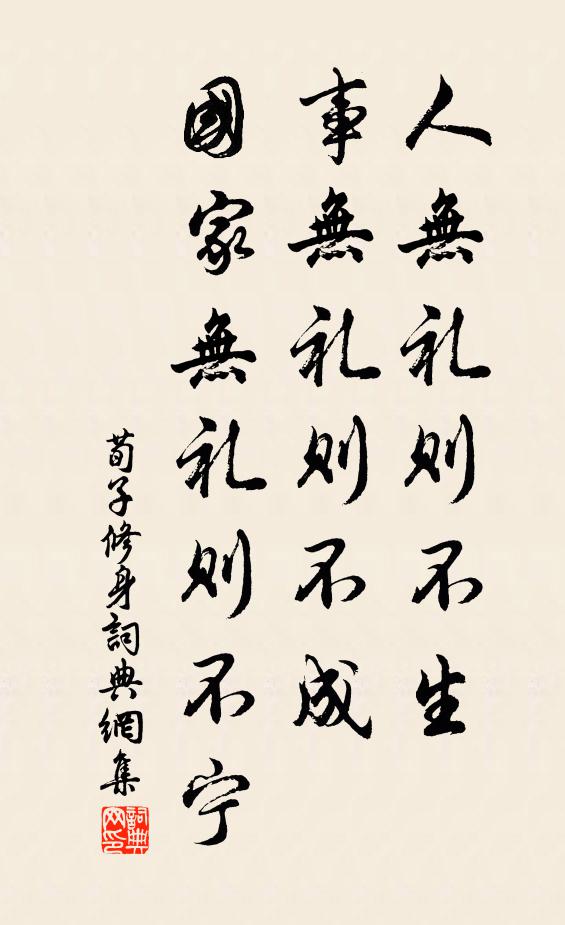 人無礼则不生
事無礼则不成
國家無礼则不宁
荀子修身詞典網集
詞典网印